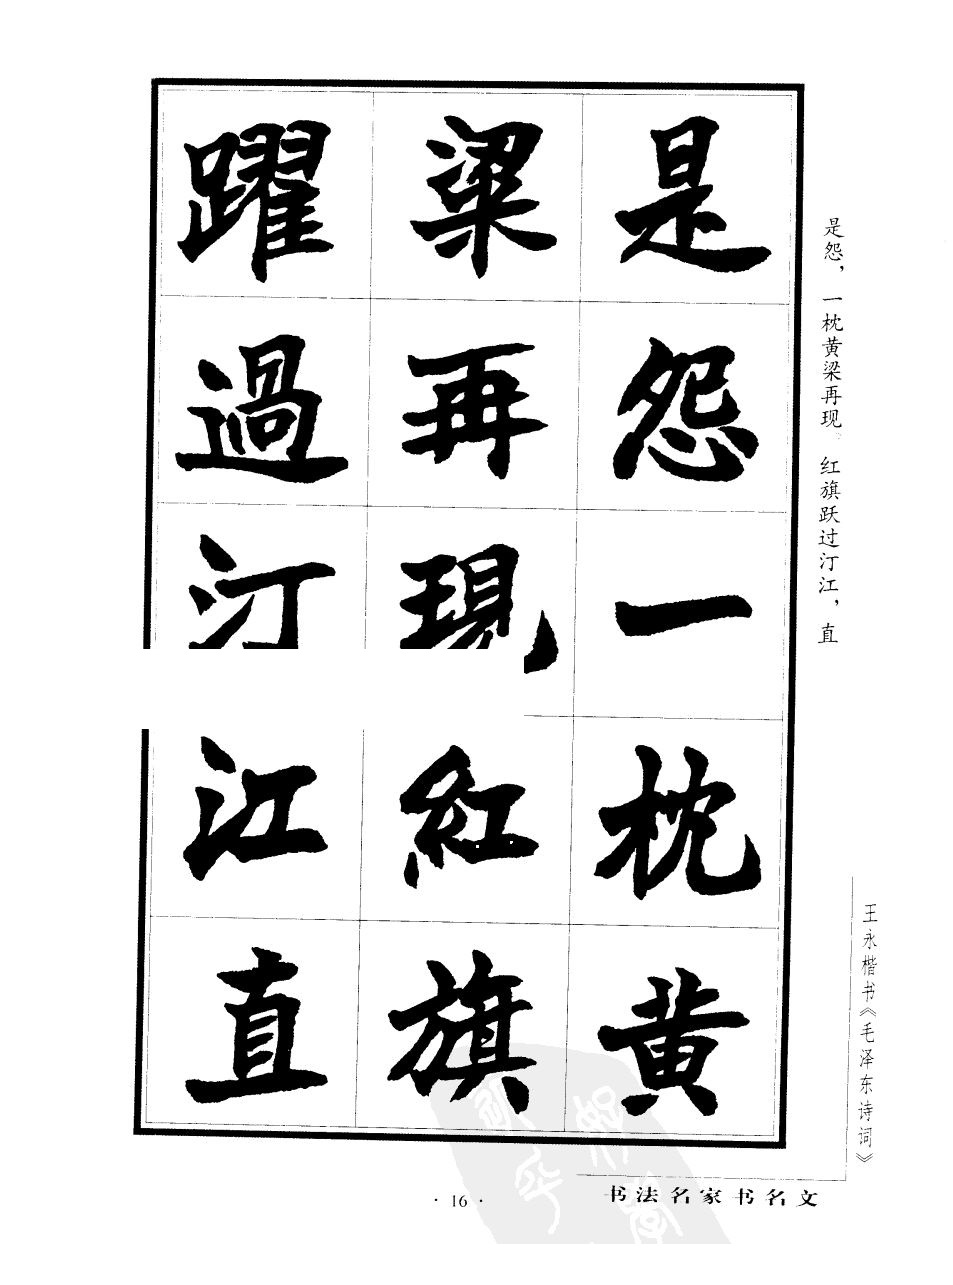 是怨，一枕黄梁再现。红旗跃过汀江，直
是怨一枕黄
梁再現紅旗
躍過汀江直
王永楷书《毛泽东诗词》
书法名家书名文
·16·